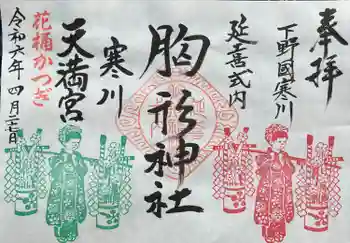 奉拝
下野國寒川
延喜式内
胸形神社
寒川
天満宮
花桶かつぎ
令和六年四月二七日